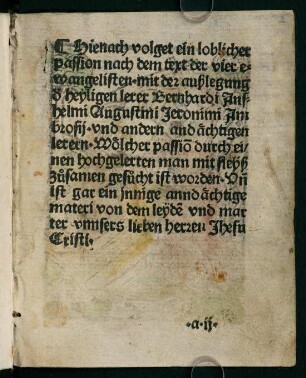 ¶ Hienach volget ein loblicher
passion nach dem text der vier e⸗
wangelisten·mit der außlegung
d̕ heyligen lerer Bernhardi Ans⸗
helmi Augustini Jeronimi Am
brosij·vnd andern andåchtigen
lerern·Wȯlcher passiō durch ei⸗
nen hochgelerten man mit fleyß
zůsamen gesůcht ist worden·Vñ
ist gar ein jnnige anndåchtige
materi von dem leydē vnd mar
ter vnnsers lieben herren Jhesu
Cristi·
·a·ij·